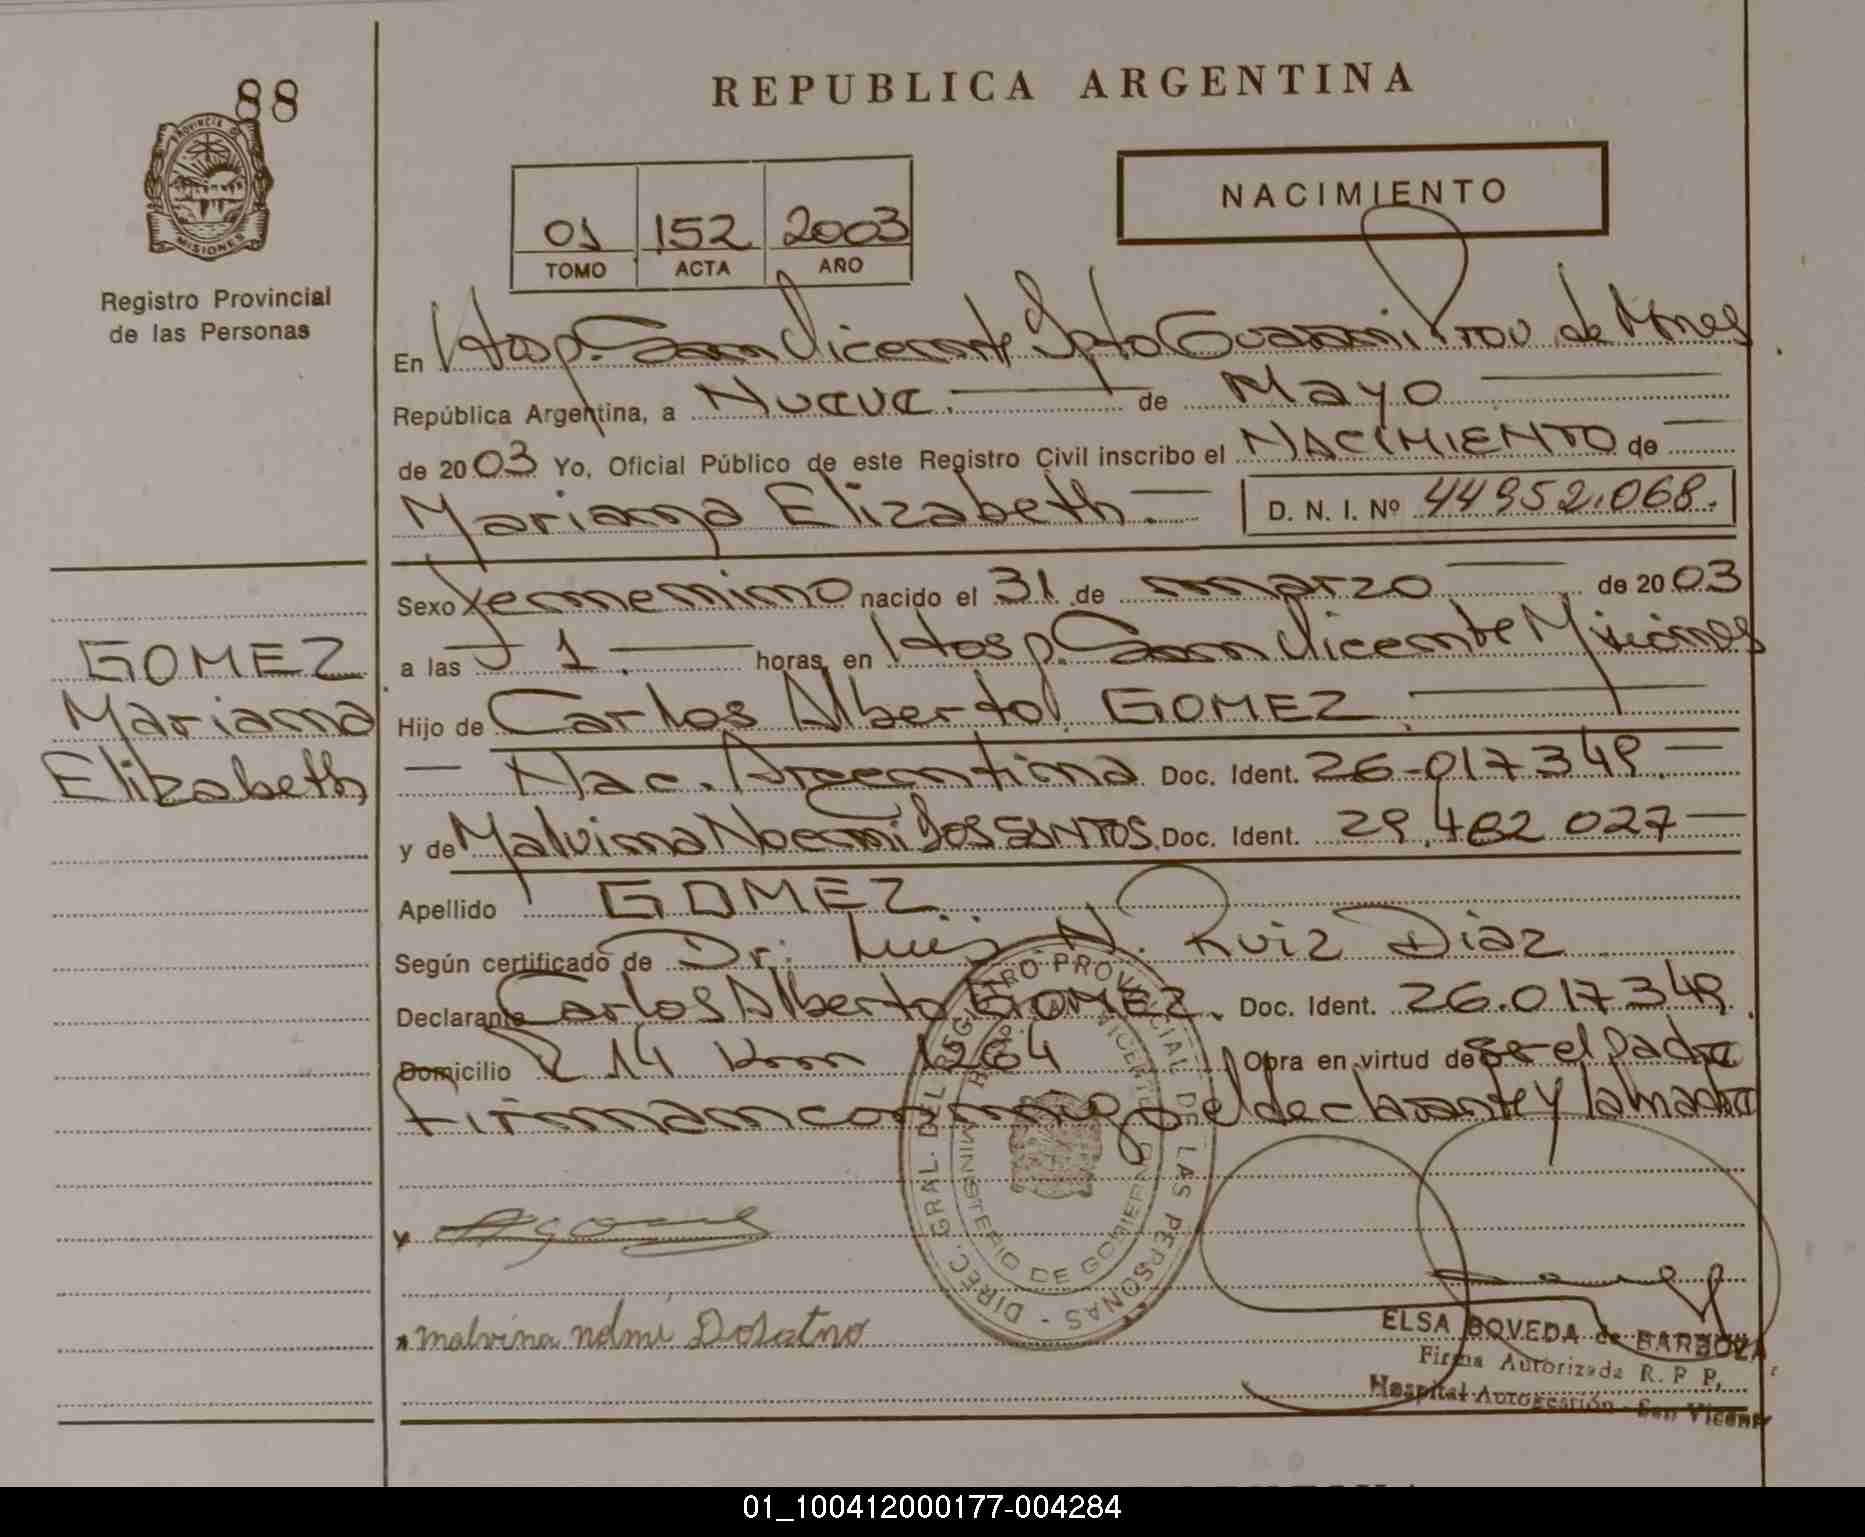 88
REPUBLICA ARGENTINA
PROVINCIA DE MISIONES
Registro Provincial
de las Personas
01 152 2003
TOMO ACTA AÑO
NACIMIENTO
En Hosp. San Vicente Dpto Guarani Prov de Mnes
República Argentina, a Nueve de Mayo
de 2003 Yo, Oficial Público de este Registro Civil inscribo el NACIMIENTO de
Mariana Elizabeth. D. N. I. Nº 44952.068.
Sexo femenino nacido el 31 de marzo de 2003
GOMEZ
Mariana
Elizabeth
a las 1 horas, en Hosp. San Vicente Misiones
Hijo de Carlos Alberto GOMEZ
Nac. Argentina Doc. Ident. 26.017349
y de Malvina Noemi Dos SANTOS Doc. Ident. 29.462 027
Apellido GOMEZ
Según certificado de Dr. Luis N. Ruiz Diaz
Declarante Carlos Alberto GOMEZ. Doc. Ident. 26.017349
Domicilio R 14 Km 1264 Obra en virtud de ser el padre
firman conmigo el declarante y la madre
DIREC. GRAL. DEL REGISTRO PROVINCIAL DE LAS PERSONAS
MINISTERIO DE GOBIERNO
malvina
ELSA BOVEDA de BARBOZA
Firma Autorizada R. P P.
Hospital Autogestión - San Vicente
01_100412000177-004284